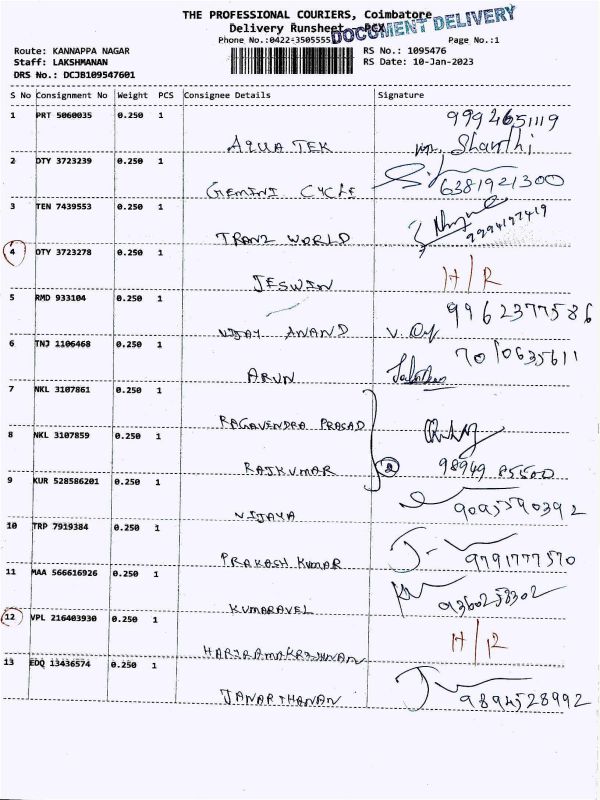 THE PROFESSIONAL COURIERS, Coimbatore
Delivery Runsheet PCX
DOCUMENT DELIVERY
Phone No.:0422-3505555 Page No.:1
Route: KANNAPPA NAGAR RS No.: 1095476
Staff: LAKSHMANAN RS Date: 10-Jan-2023
DRS No.: DCJB109547601
S No Consignment No Weight PCS Consignee Details Signature
1 PRT 5060035 0.250 1 9994651119
AQUA TEK Shanthi
2 OTY 3723239 0.250 1
GEMINI CYCLE 6381921300
3 TEN 7439553 0.250 1
TRANZ WORLD 9994197419
4 OTY 3723278 0.250 1
JESWIN H/R
5 RMD 933104 0.250 1 9962377586
VIJAY ANAND V.
6 TNJ 1106468 0.250 1 7010635611
ARUN
7 NKL 3107861 0.250 1
RAGAVENDRA PRASAD
8 NKL 3107859 0.250 1
RAJKUMAR 2 98949 85500
9 KUR 528586201 0.250 1
VIJAYA 9095590392
10 TRP 7919384 0.250 1
PRAKASH KUMAR 9791777570
11 MAA 566616926 0.250 1
KUMARAVEL 9360258302
12 VPL 216403930 0.250 1
HARIRAMAKRISHNAN H/R
13 EDQ 13436574 0.250 1
JANARTHANAN 9894528992